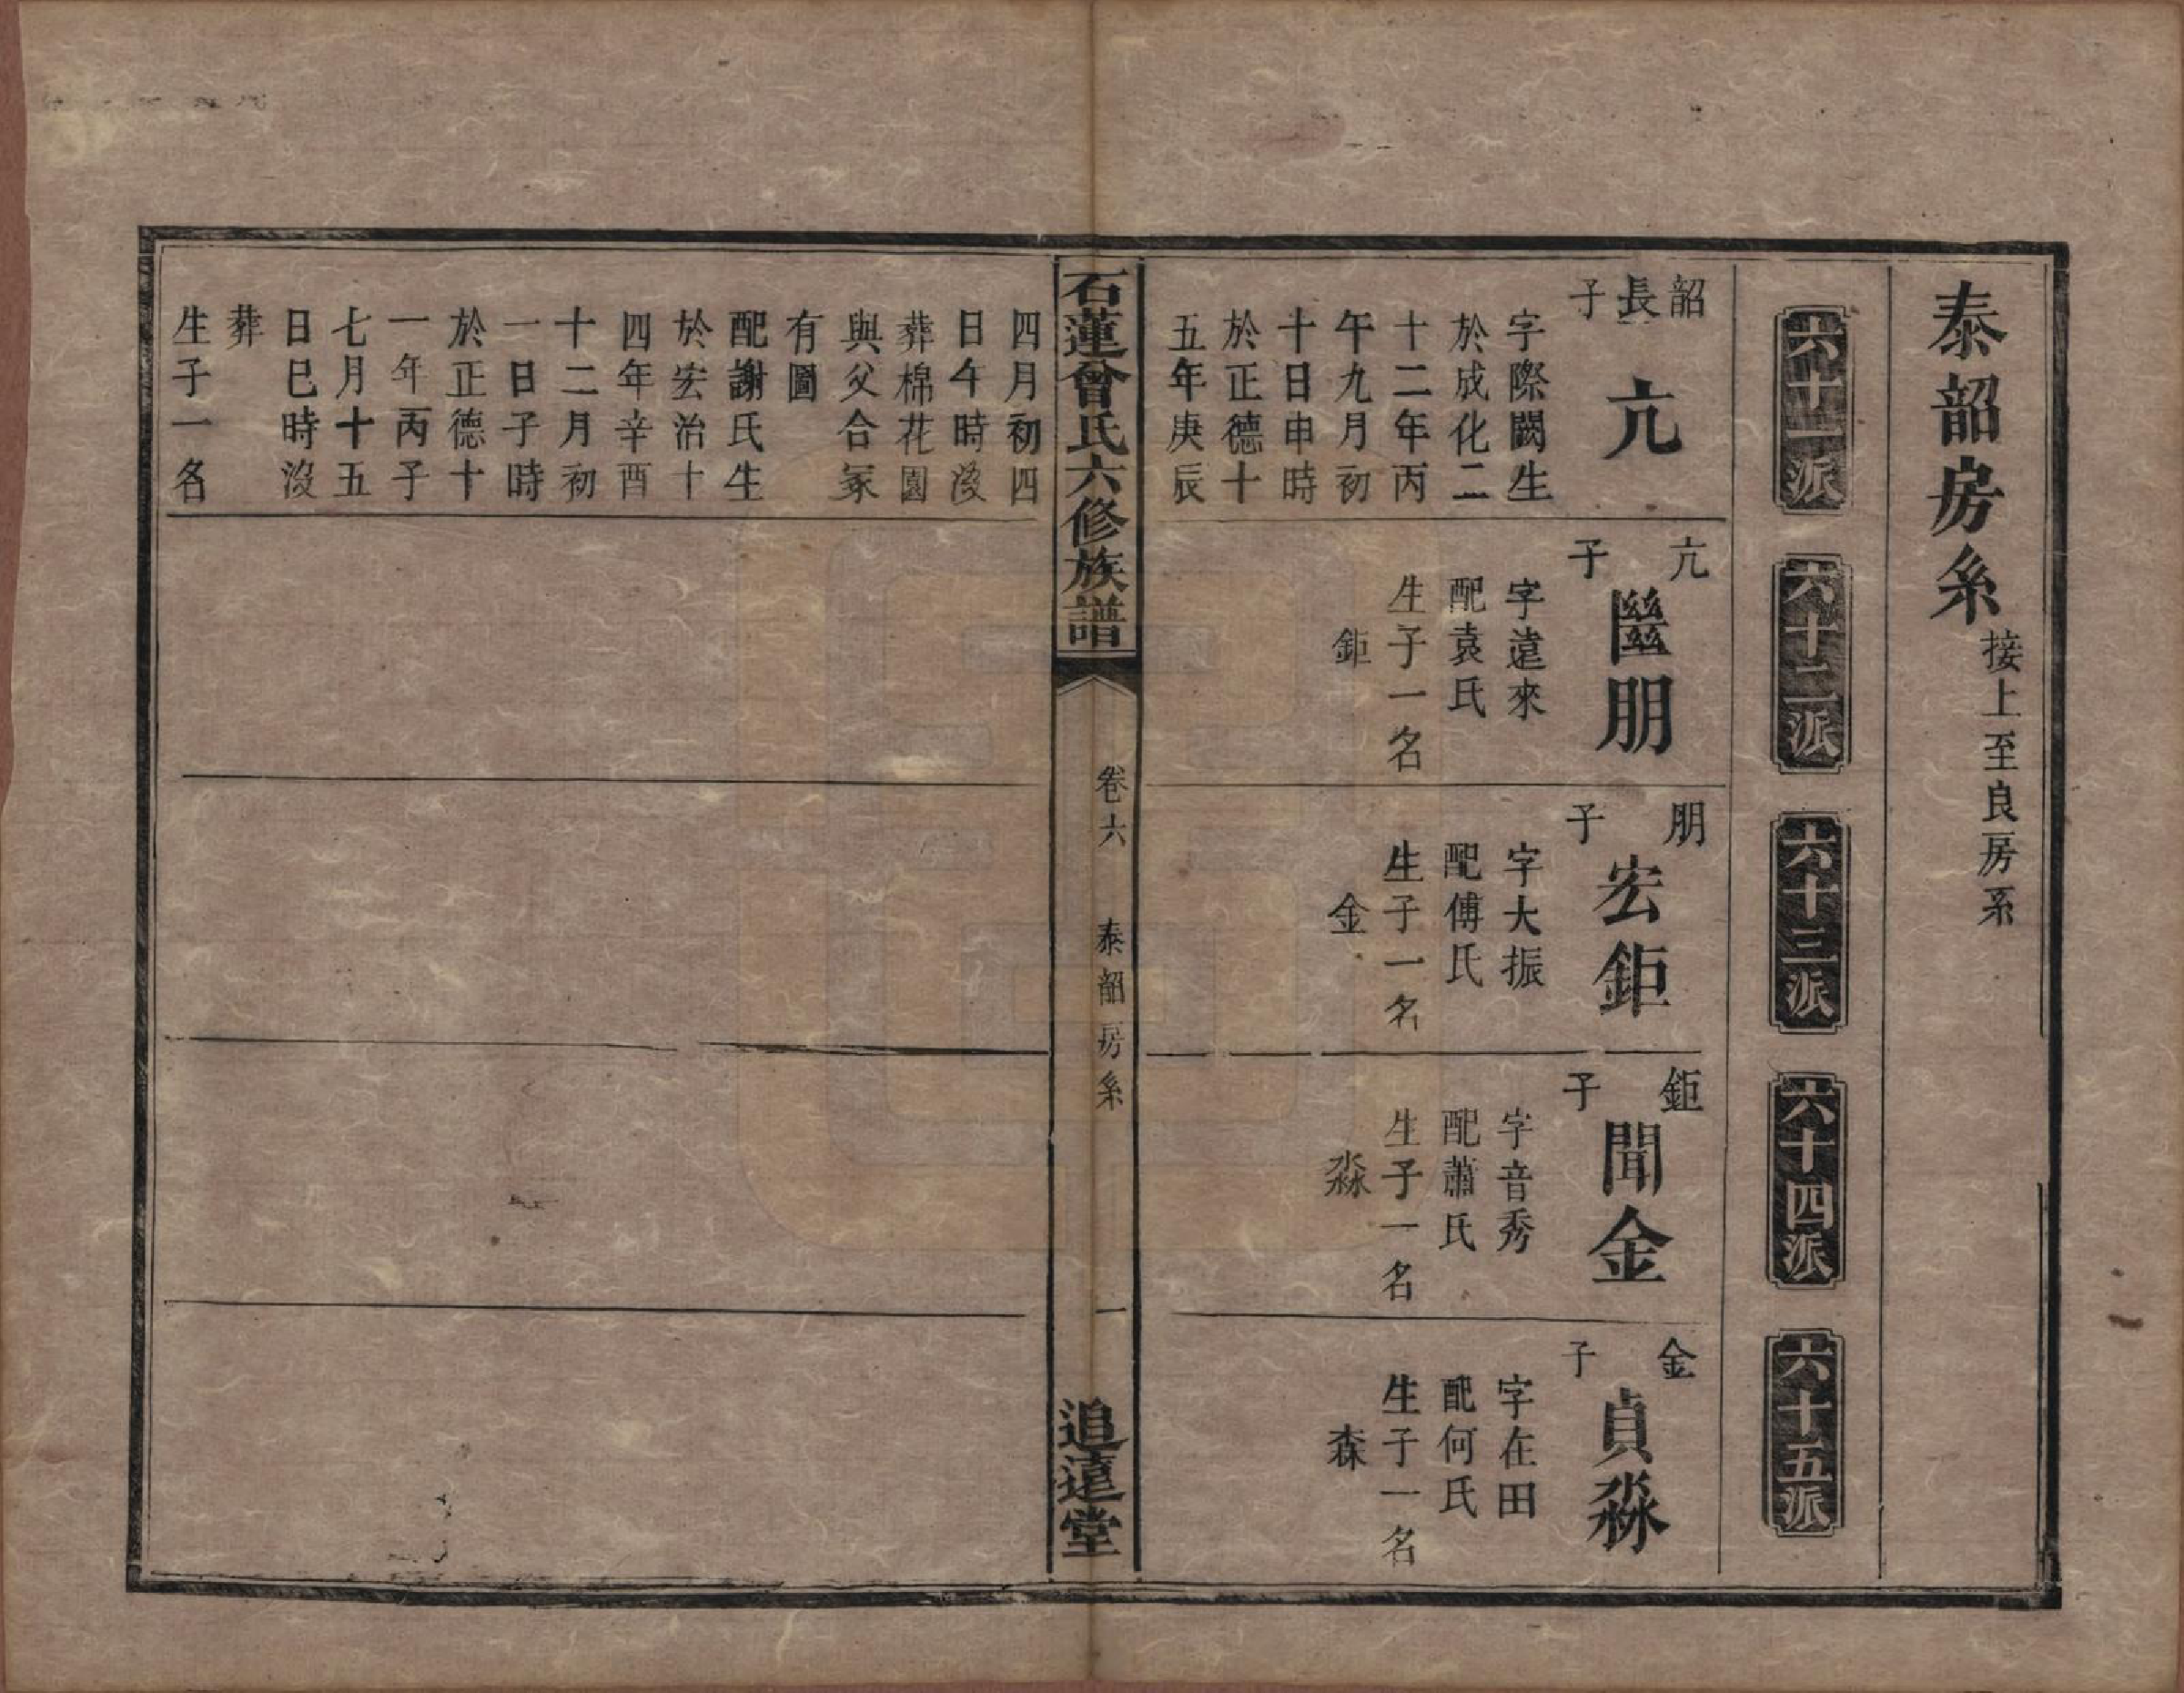 泰韶房系 接上至良房系
六十一派
六十二派
六十三派
六十四派
六十五派
韶長子
亢
字際闕生
於成化二
十二年丙
午九月初
十日申時
於正德十
五年庚辰
四月初四
日午時沒
葬棉花園
與父合冢
有圖
配謝氏生
於宏治十
四年辛酉
十二月初
一日子時
於正德十
一年丙子
七月十五
日巳時沒
葬
生子一名
亢子
朋
字遠來
配袁氏
生子一名
鉅
朋子
宏鉅
字大振
配傅氏
生子一名
金
鉅子
聞金
字音秀
配蕭氏
生子一名
淼
金子
貞淼
字在田
配何氏
生子一名
森
石蓮曾氏六修族譜
卷六
泰韶房系
一
追遠堂